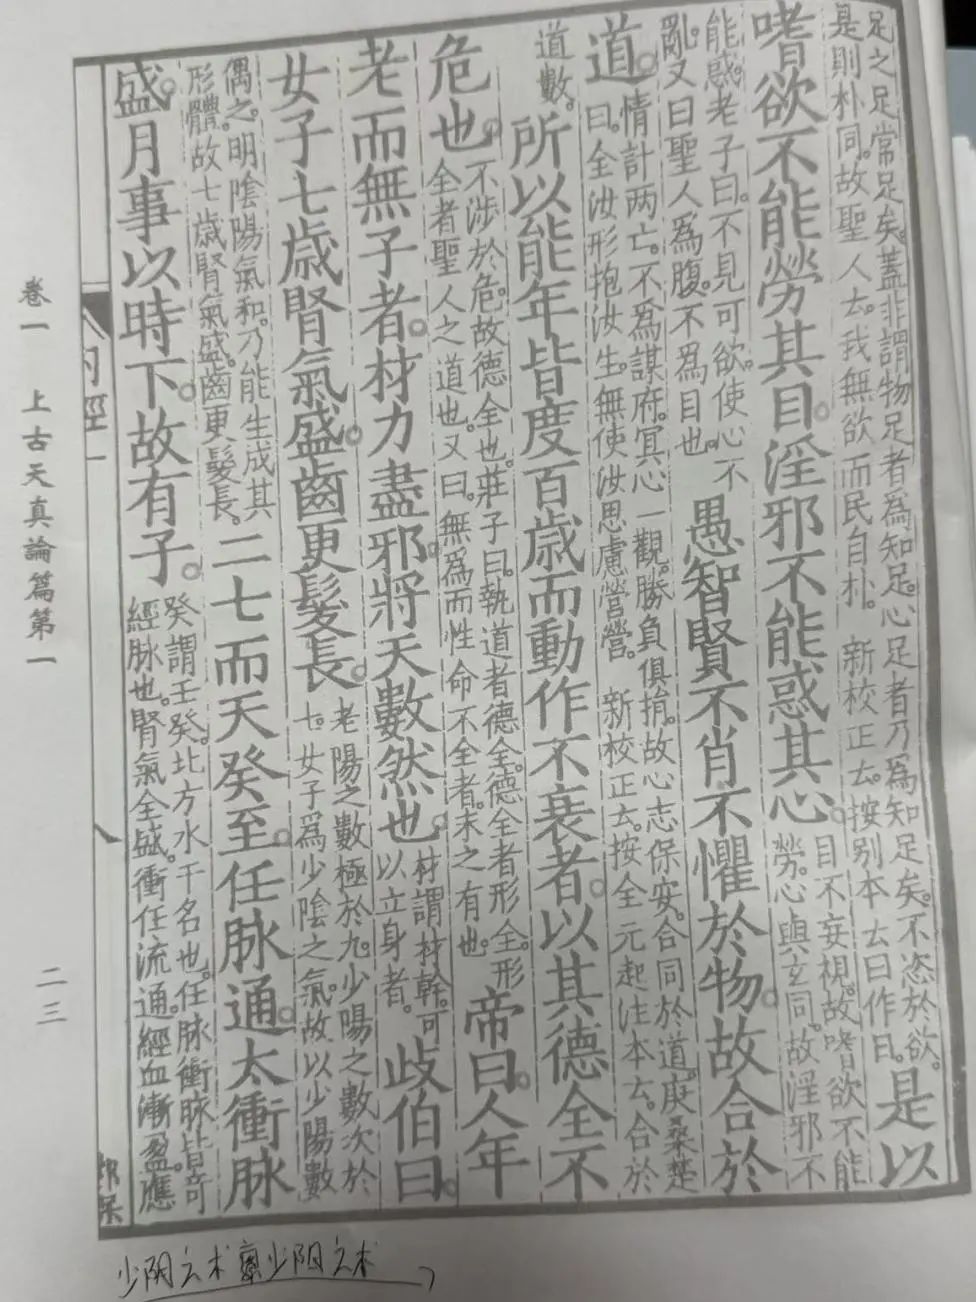 足之足常足矣蓋非謂物足者為知足心足者乃為知足矣不恣於欲
是則朴同故聖人云我無欲而民自朴 新校正云按別本云曰作日 是以
嗜欲不能勞其目淫邪不能惑其心
目不妄視故嗜欲不能
勞心與玄同故淫邪不
能惑老子曰不見可欲使心不
亂又曰聖人為腹不為目也
愚智賢不肖不懼於物故合於
道
情計两亡不為謀府冥心一觀勝負俱捐故心志保安合同於道庚桑楚
曰全汝形抱汝生無使汝思慮營營 新校正云按全元起注本云合於
道數
所以能年皆度百歲而動作不衰者以其德全不
危也
不涉於危故德全也莊子曰執道者德全德全者形全形
全者聖人之道也又曰無為而性命不全者未之有也
帝曰人年
老而無子者材力盡邪將天數然也
材謂材幹可
以立身者
歧伯曰
女子七歲腎氣盛齒更髮長
老陽之數極於九少陽之數次於
七女子為少陰之氣故以少陽數
偶之明陰陽氣和乃能生成其
形體故七歲腎氣盛齒更髮長
二七而天癸至任脉通太衝脉
盛月事以時下故有子
癸謂壬癸北方水干名也任脉衝脉皆奇
經脉也腎氣全盛衝任流通經血漸盈應
内經一
八
卷一 上古天真論篇第一
二三
少阴之术 少阳之术